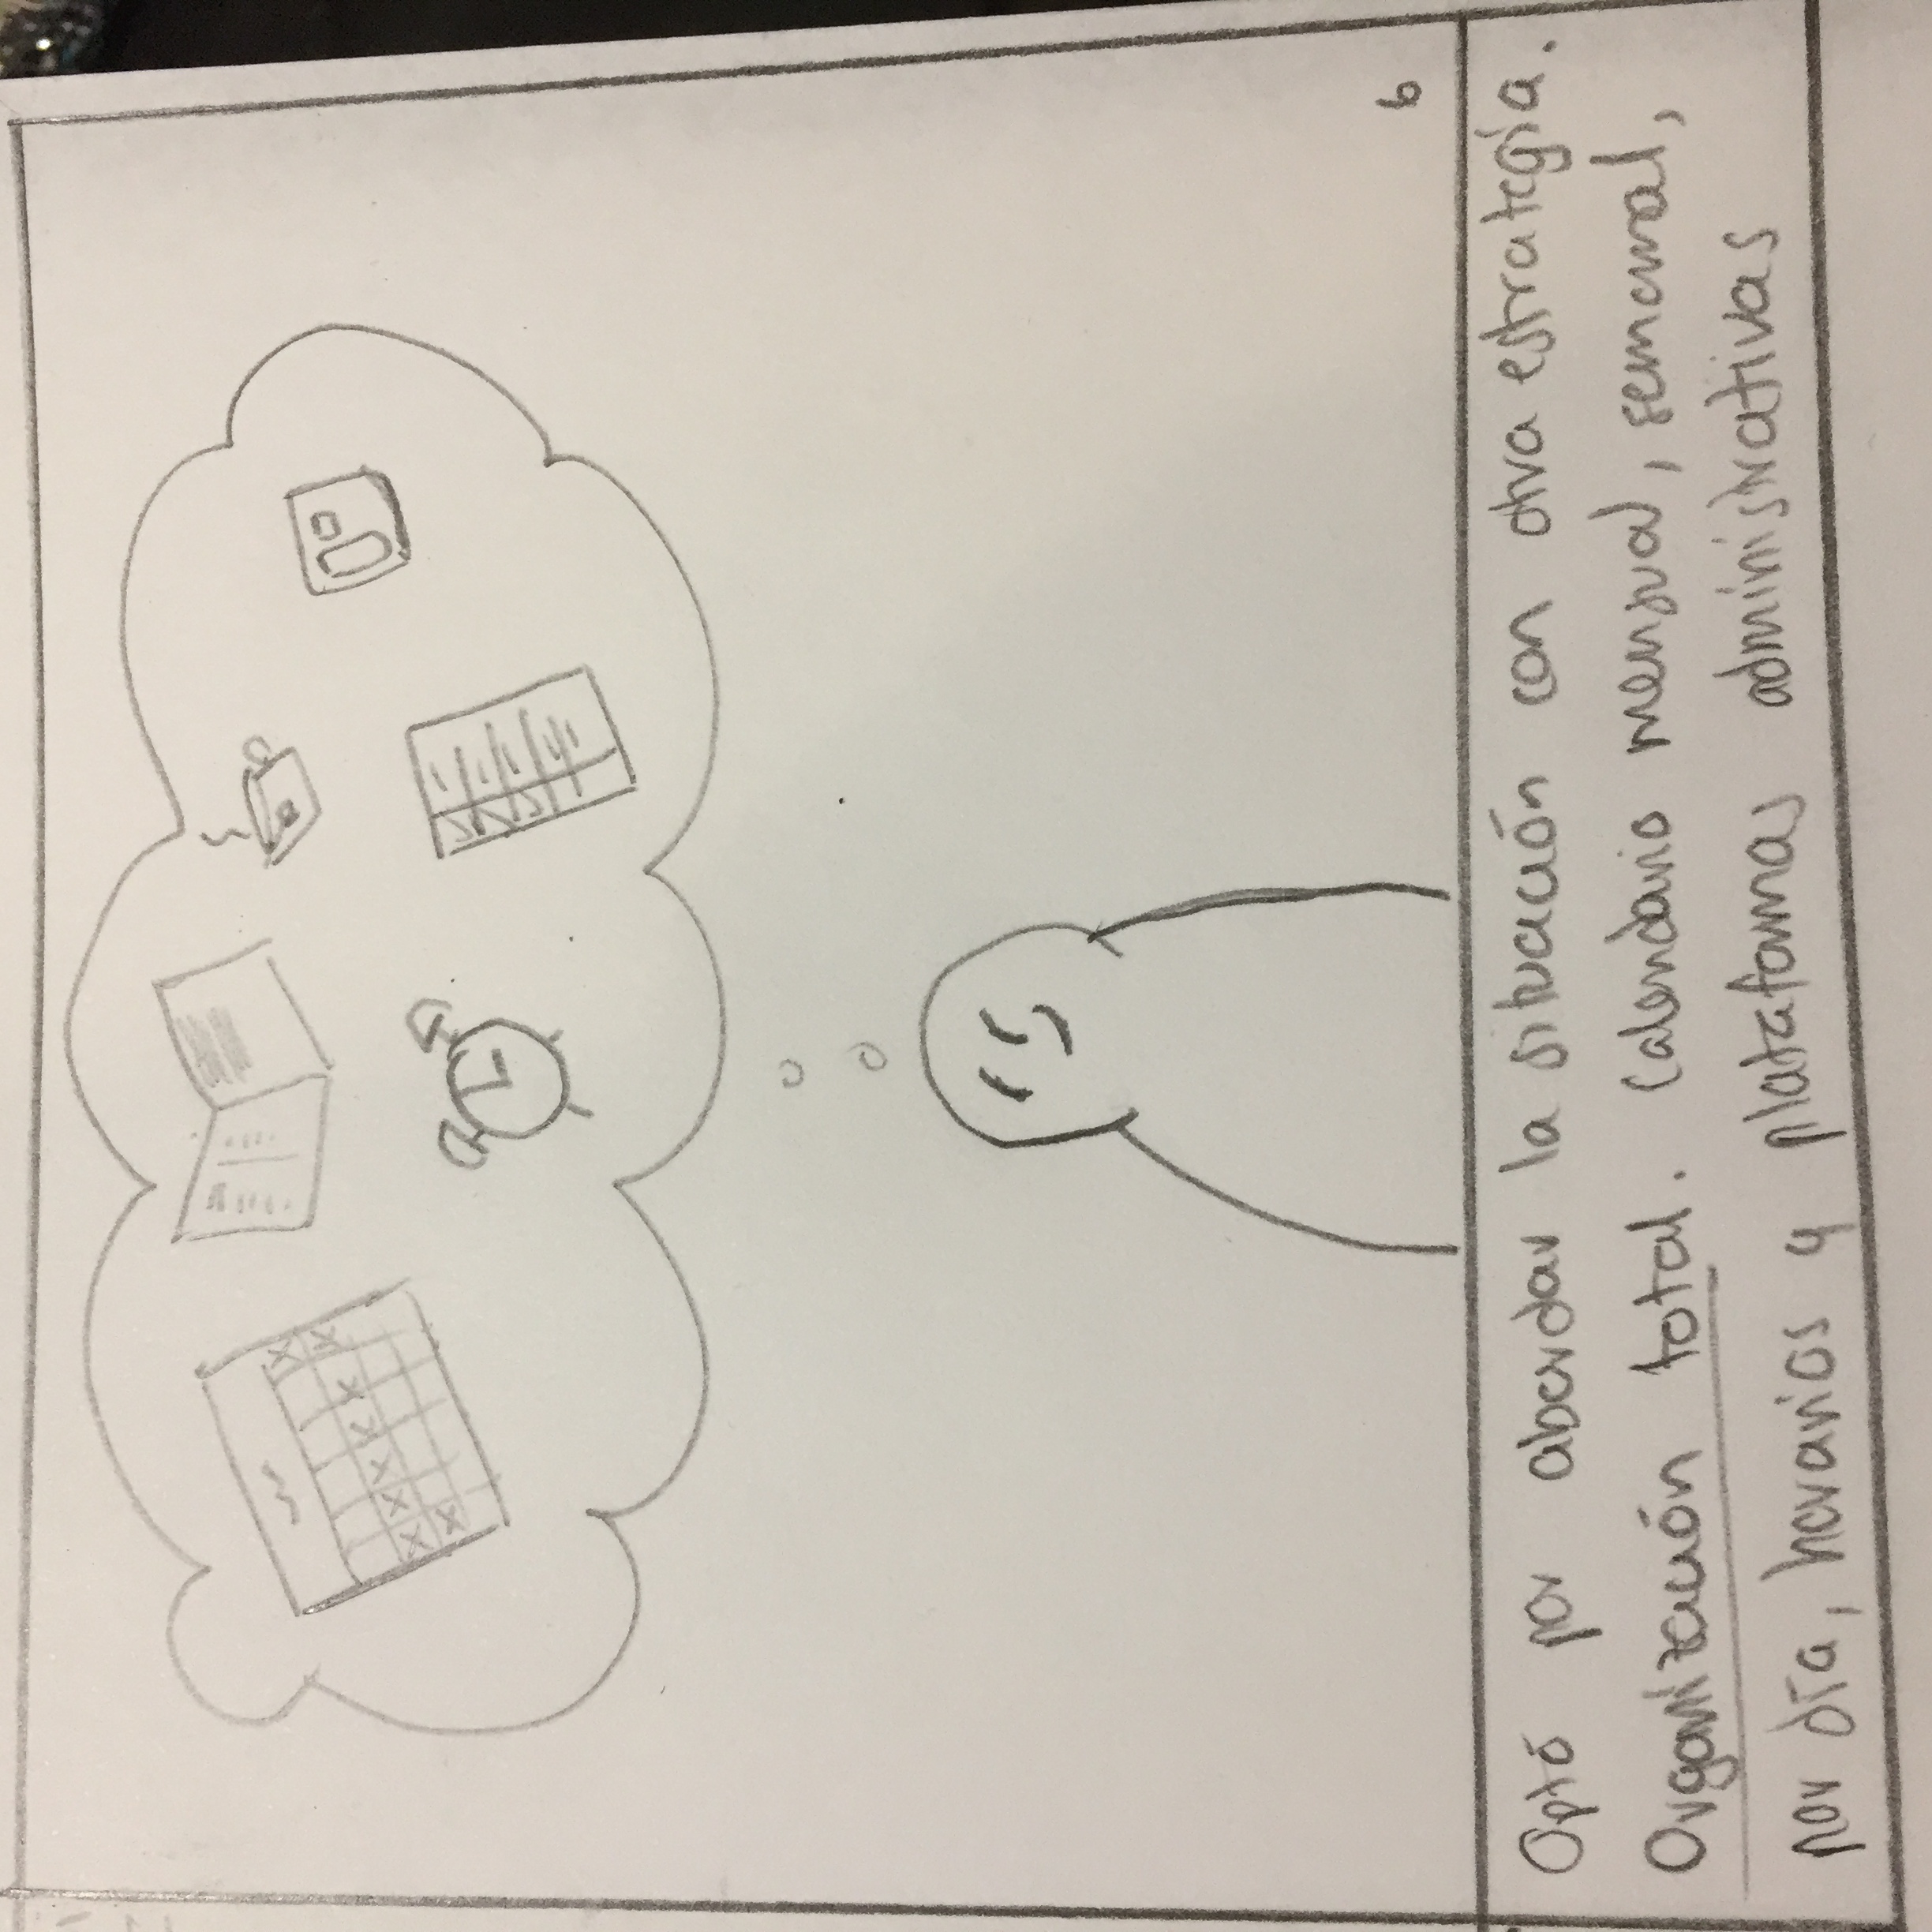 6
Optó por abordar la situación con otra estrategia.
Organización total. Calendario mensual, semanal,
por día, horarios y plataformas administrativas